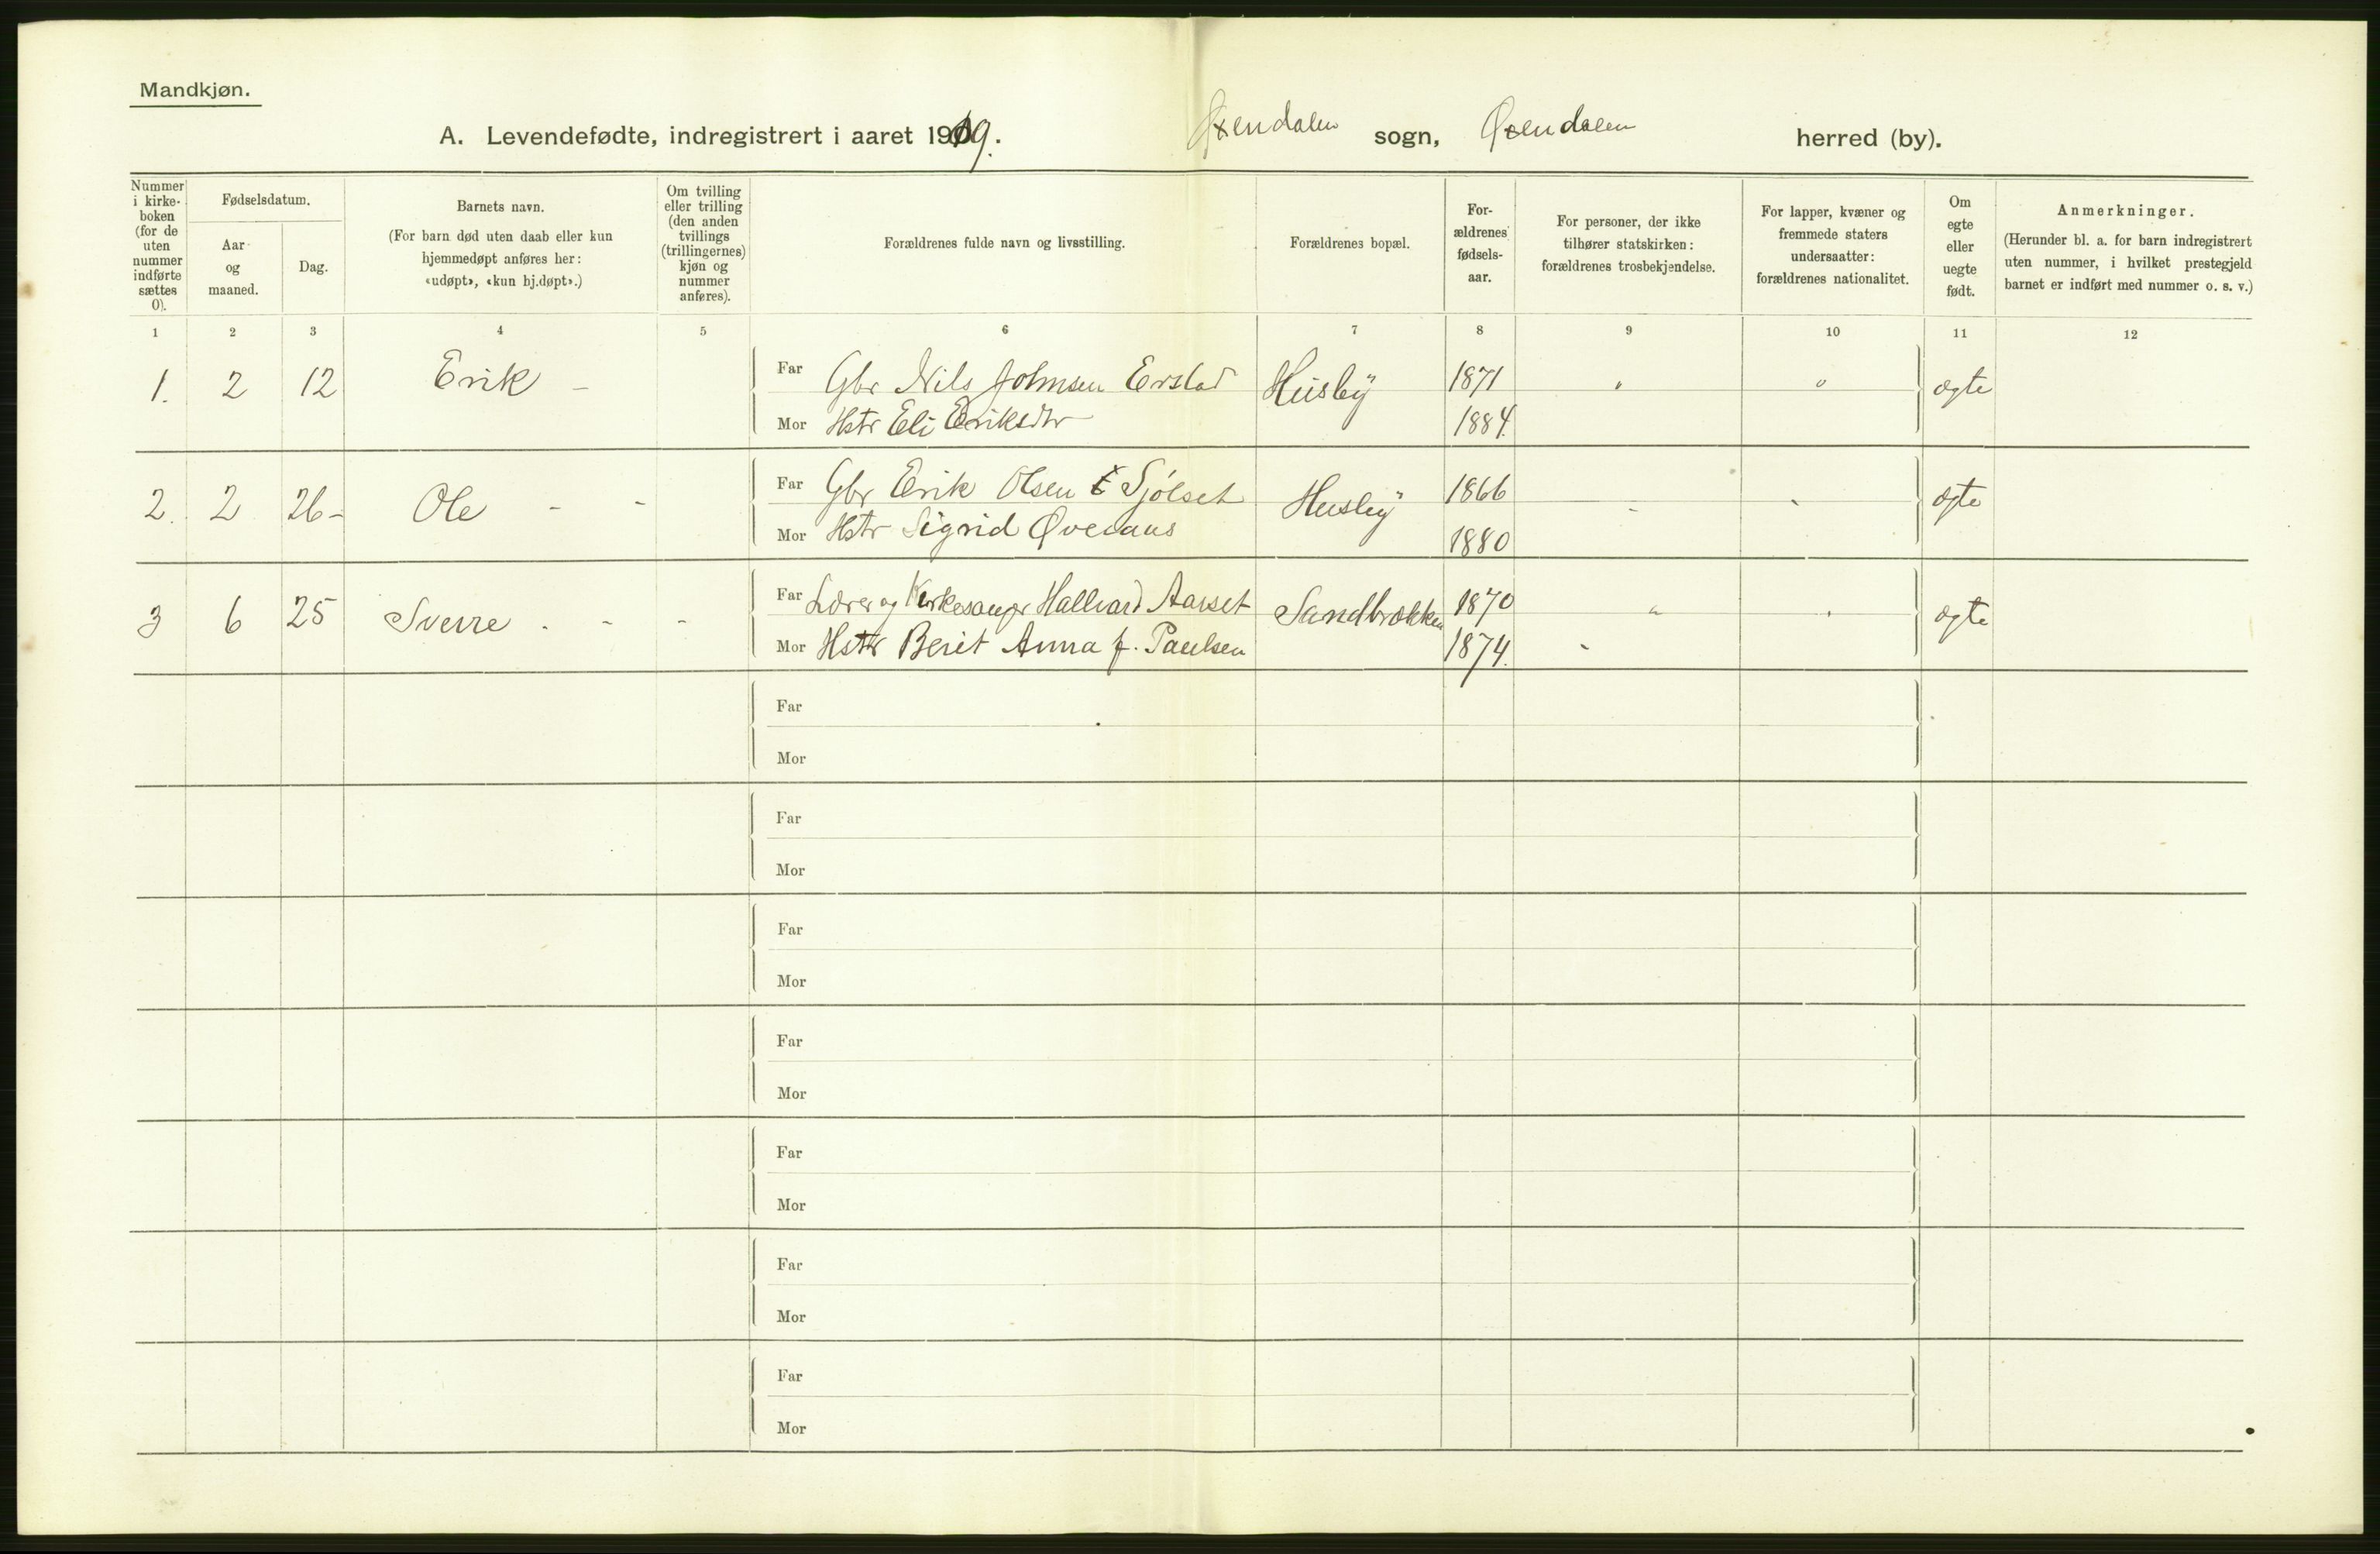 Mandkjøn.
A. Levendefødte, indregistrert i aaret 1919. Øxendalen sogn, Øxendalen herred (by).
Nummer i kirkeboken (for de uten nummer indførte sættes 0).
Fødselsdatum.
Aar og maaned.
Dag.
Barnets navn.
(For barn død uten daab eller kun hjemmedøpt anføres her: «udøpt», «kun hj.døpt».)
Om tvilling eller trilling (den anden tvillings (trillingernes) kjøn og nummer anføres).
Forældrenes fulde navn og livsstilling.
Forældrenes bopæl.
Forældrenes fødselsaar.
For personer, der ikke tilhører statskirken: forældrenes trosbekjendelse.
For lapper, kvæner og fremmede staters undersaatter: forældrenes nationalitet.
Om egte eller uegte født.
Anmerkninger.
(Herunder bl. a. for barn indregistrert uten nummer, i hvilket prestegjeld barnet er indført med nummer o. s. v.)
1 2 3 4 5 6 7 8 9 10 11 12
1. 2 12 Erik - Far Gbr Nils Johnsen Erstad Husby 1871 " " ægte
Mor Hstr Eli Eriksdtr 1884.
2. 2 26- Ole - - Far Gbr Erik Olsen Sjölset Husby 1866 - - ægte
Mor Hstr Sigrid 1880
3 6 25 Sverre - - - Far Lærer og Kirkesanger Hallvard Aarset Sandbrækken 1870 " " ægte
Mor Hstr Berit Anna f. Paulsen 1874. -
Far
Mor
Far
Mor
Far
Mor
Far
Mor
Far
Mor
Far
Mor
Far
Mor